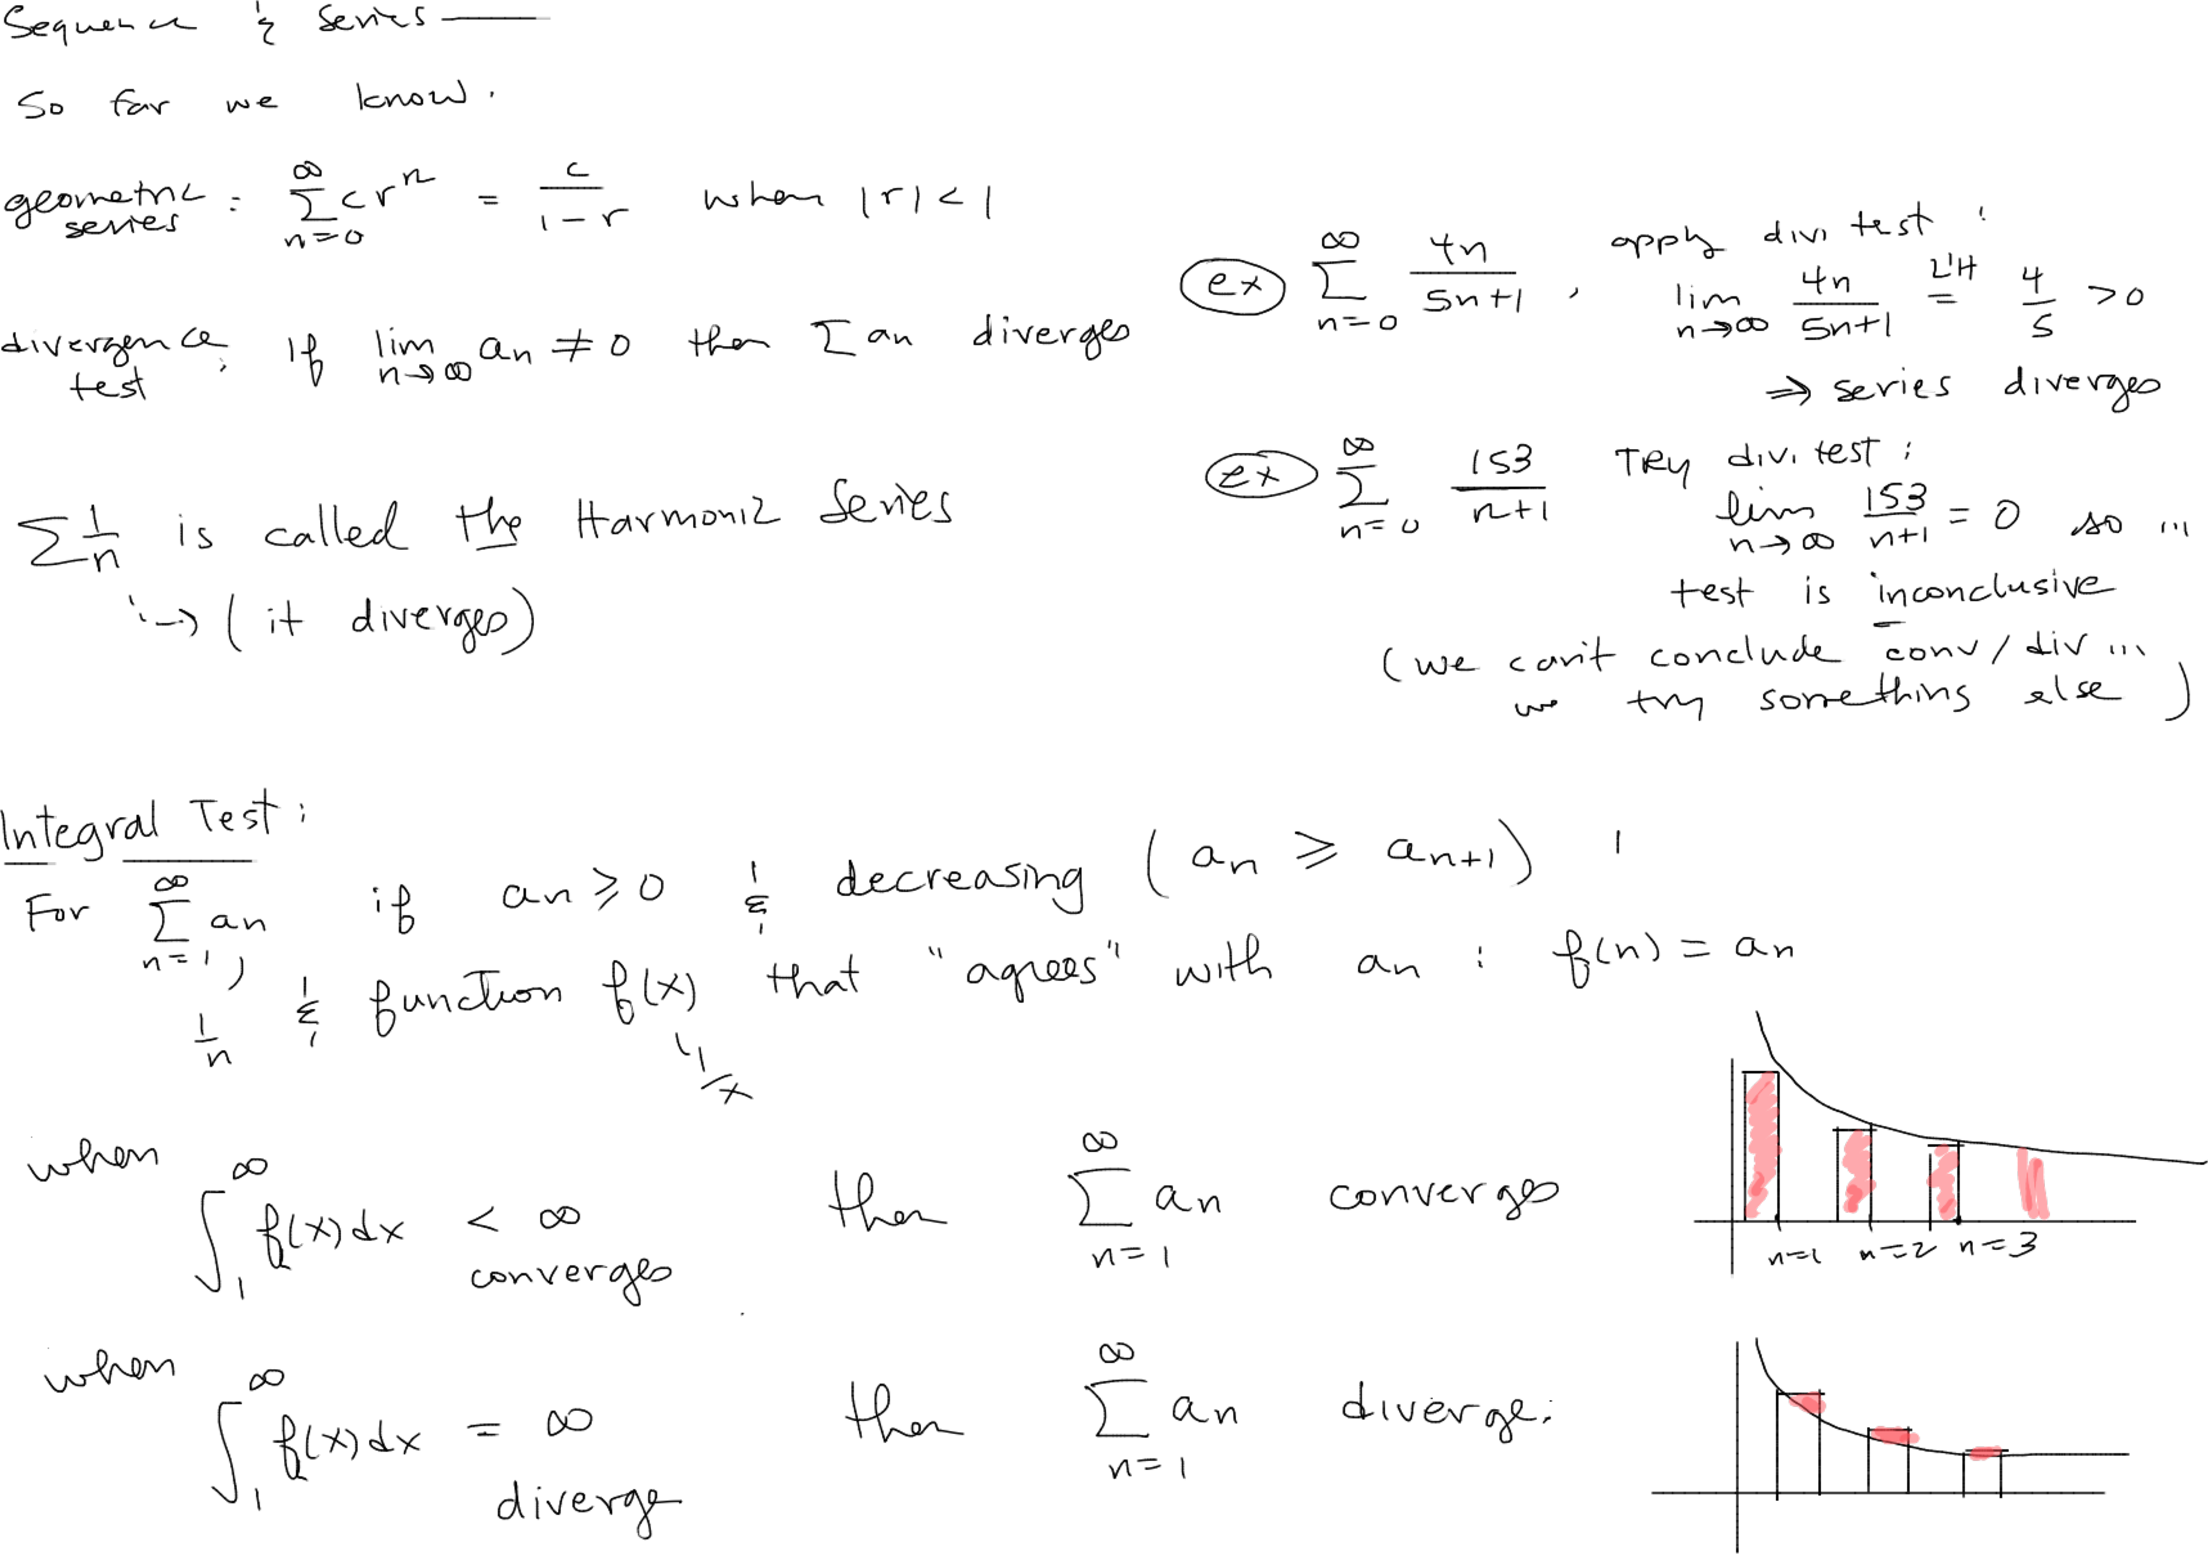 Sequence & Series
So far we know.
geometric series : ∑_{n=0}^{∞} c r^n = c/(1-r) when |r| < 1
divergence test : If lim_{n→∞} an ≠ 0 then ∑ an diverges
∑ 1/n is called the Harmonic Series
↳ (it diverges)
ex ∑_{n=0}^{∞} 4n/(5n+1) , apply divi test :
lim_{n→∞} 4n/(5n+1) =^{L'H} 4/5 > 0
⇒ series diverges
ex ∑_{n=0}^{∞} 153/(n+1) TRY divi test :
lim_{n→∞} 153/(n+1) = 0 so ...
test is inconclusive
(we can't conclude conv / div ...
we try something else)
Integral Test :
For ∑_{n=1}^{∞} an, if an ≥ 0 & decreasing (an ≥ an+1) ,
& function f(x) that "agrees" with an : f(n) = an
1/n
1/x
when ∫_1^∞ f(x)dx < ∞ then ∑_{n=1}^{∞} an converges
converges
n=1 n=2 n=3
when ∫_1^∞ f(x)dx = ∞ then ∑_{n=1}^{∞} an diverge.
diverge